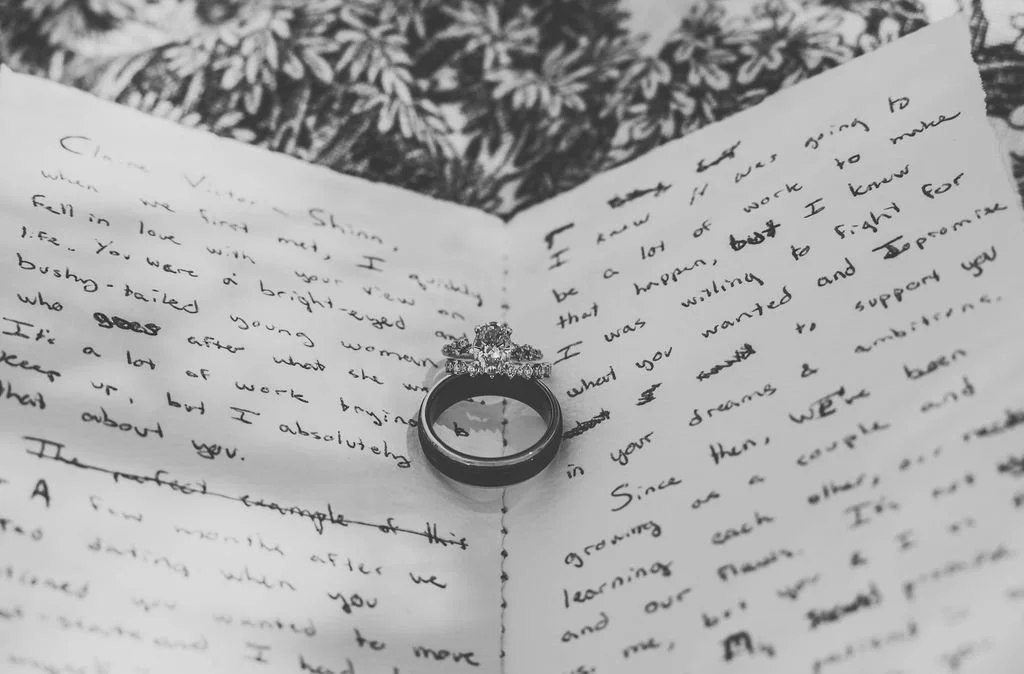 Claire Victoria Shinn,
when we first met, I quickly
fell in love with your view on
life.. You were a bright-eyed and
bushy-tailed young woman
who goes after what she
It's a lot of work trying
keep up, but I absolutely
that about you.
The perfect example of this
A few months after we
dating when you
you wanted to move
and I had
I
I knew it was going to
be a lot of work to make
that happen, but I knew
I was willing to fight for
what you wanted and I promise
to support you
in your dreams & ambitions.
Since then, we've been
growing as a couple and
learning each other, our
and our flaws. It's not
me, but you & I
My promise